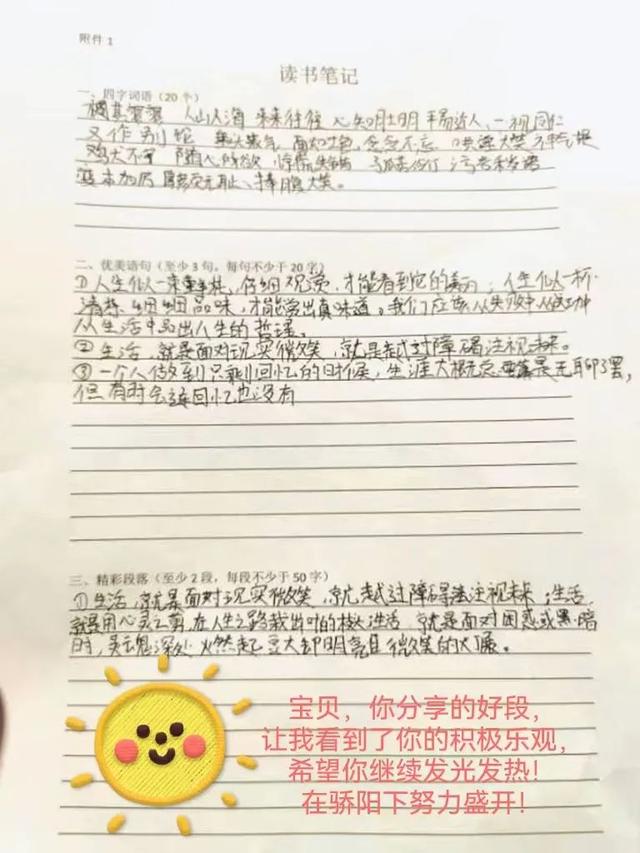 附件 1
读书笔记
一、四字词语（20 个）
人山人海 来来往往 心知肚明 平易近人、一视同仁
又作别论 面如土色 念念不忘
鸡犬不宁 随心所欲
变本加厉 厚颜无耻、捧腹大笑。
二、优美语句（至少 3 句，每句不少于 20 字）
①人生似一束鲜花，仔细观赏，才能看到它的美丽；人生似一杯
清茶，细细品味，才能赏出真味道。我们应该从失败中从成功中
从生活中品出人生的哲理。
②生活，就是面对现实微笑，就是越过障碍注视未来。
③一个人做到只剩回忆的时候，生涯大概总是无聊了罢，
但有时会连回忆也没有
三、精彩段落（至少 2 段，每段不少于 50 字）
①生活，就是面对现实微笑，就越过障碍注视未来；生活
就是用心灵之剪，在人生之路裁出叶的枝头；生活，就是面对困惑或黑暗
时，灵魂深处燃起豆大却明亮且微笑的灯盏。
宝贝，你分享的好段，
让我看到了你的积极乐观，
希望你继续发光发热！
在骄阳下努力盛开！